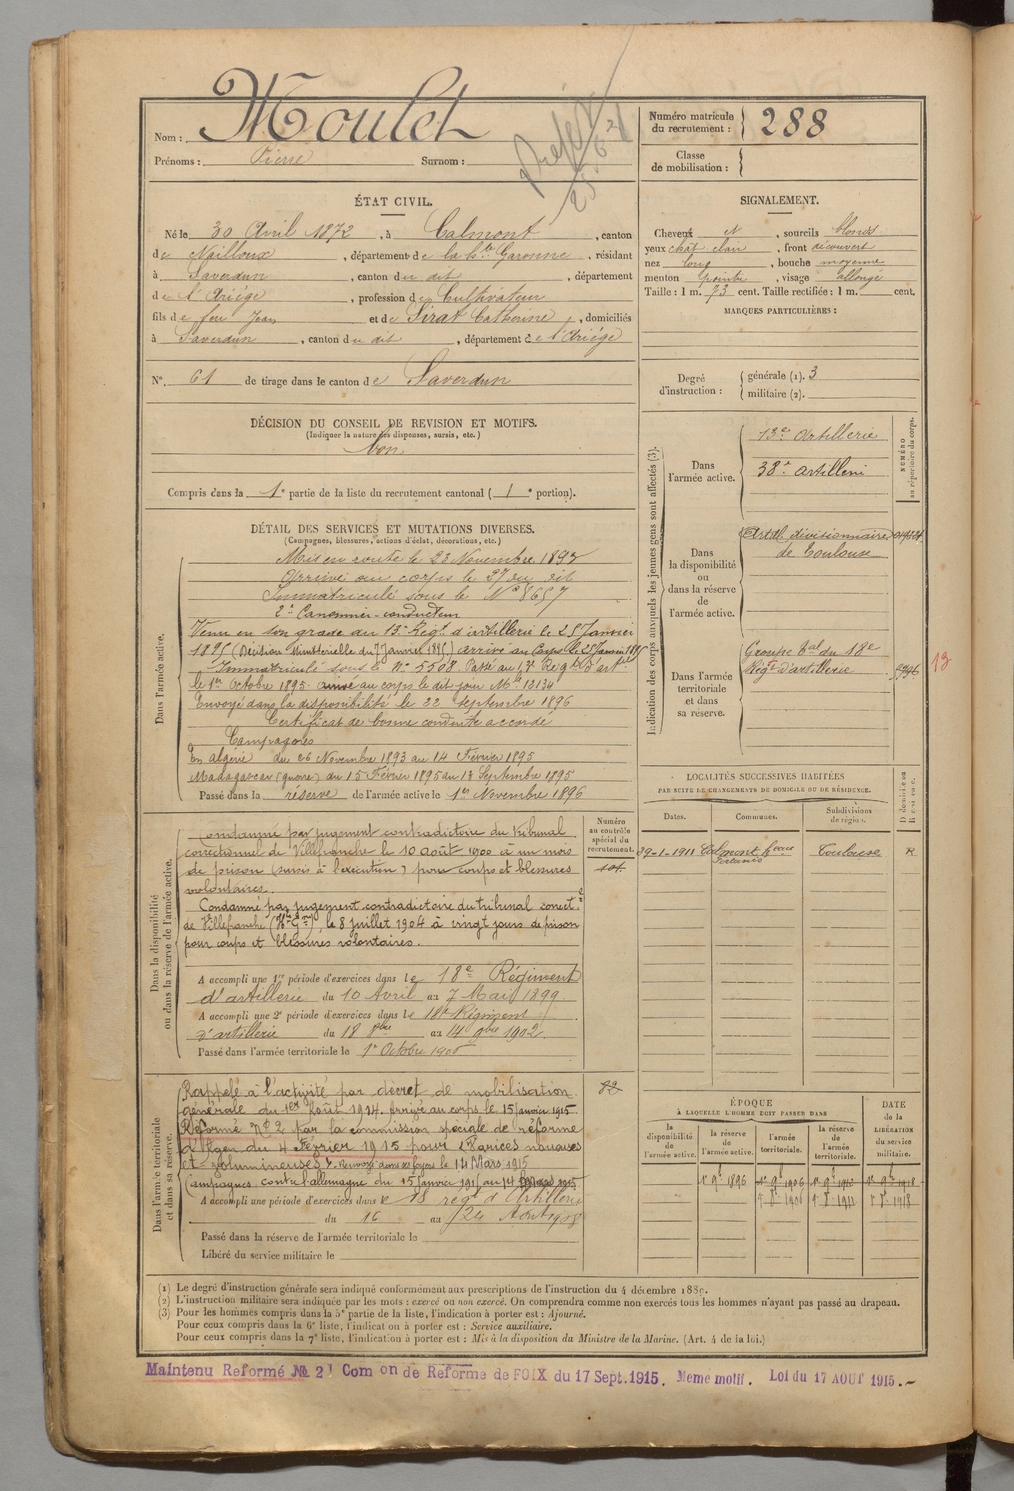 Nom : Moulet
Prénoms : Pierre Surnom :
Numéro matricule
du recrutement : 288
Classe
de mobilisation :
ÉTAT CIVIL.
Né le 30 Avril 1872, à Calmont, canton
de Nailloux, département de la Hte Garonne, résidant
à Saverdun, canton du dit, département
de l'Ariège, profession de Cultivateur
fils de feu Jean et de Sirat Catherine, domiciliés
à Saverdun, canton du dit, département de l'Ariège
N° 61 de tirage dans le canton de Saverdun
DÉCISION DU CONSEIL DE REVISION ET MOTIFS.
(Indiquer la nature des dispenses, sursis, etc.)
bon
Compris dans la 1e partie de la liste du recrutement cantonal ( 1e portion).
DÉTAIL DES SERVICES ET MUTATIONS DIVERSES.
(Campagnes, blessures, actions d'éclat, décorations, etc.)
Dans l'armée active.
Mis en route le 23 Novembre 1893
arrivé au corps le 27 du dit
Immatriculé sous le N° 8687
2e Canonnier-conducteur
Venu en son grade au 13e Régt d'artillerie le 25 Janvier
1895 (Décision Ministérielle du 7 Janvier 1895) arrivé au Corps le 25 Janvier 1895
Immatriculé sous le N° 5508. Passé au Régt d'artie
le 1er Octobre 1895 arrivé au corps le dit jour Mle 12134
Envoyé dans la disponibilité le 22 Septembre 1896
Certificat de bonne conduite accordé
Campagnes
En algérie du 26 Novembre 1893 au 14 Février 1895
Madagascar (guerre) du 15 Février 1895 au 13 Septembre 1895
Passé dans la réserve de l'armée active le 1er Novembre 1896
Dans la disponibilité
ou dans la réserve de l'armée active.
Condamné par jugement contradictoire du tribunal
correctionnel de Villefranche le 10 août 1900 à un mois
de prison (sursis à l'exécution) pour coups et blessures
volontaires.
Condamné par jugement contradictoire du tribunal correct.l
de Villefranche (Hte Gne), le 8 juillet 1904 à vingt jours de prison
pour coups et blessures volontaires.
A accompli une 1re période d'exercices dans le 18e Régiment
d'artillerie du 10 Avril au 7 Mai 1899
A accompli une 2e période d'exercices dans le 18e Régiment
d'artillerie du 18 8bre au 14 9bre 1902
Passé dans l'armée territoriale le 1er Octobre 1906
Numéro
au contrôle
spécial du
recrutement.
Dans l'armée territoriale
et dans sa réserve.
Rappelé à l'activité par décret de mobilisation
générale du 1er Août 1914. Arrivé au corps le 15 Janvier 1915.
Réformé N° 2 par la commission spéciale de réforme
d'Agen du 4 Février 1915 pour Varices noueuses
et volumineuses. Renvoyé dans ses foyers le 14 Mars 1915
Campagnes contre l'allemagne du 15 Janvier 1915 au 14 Mars 1915
A accompli une période d'exercices dans le 18 regt d'Artillerie
du 16 au 24 Aout 1908
Passé dans la réserve de l'armée territoriale le
Libéré du service militaire le
82
SIGNALEMENT.
Cheveux N, sourcils blonds
yeux chat clair, front découvert
nez long, bouche moyenne
menton pointu, visage allongé
Taille : 1 m. 73 cent. Taille rectifiée : 1 m. cent.
MARQUES PARTICULIÈRES :
Degré
d'instruction :
générale (1). 3
militaire (2).
Indication des corps auxquels les jeunes gens sont affectés (3).
NUMÉRO
au répertoire du corps.
Dans
l'armée active.
13e artillerie
38e artillerie
Dans
la disponibilité
ou
dans la réserve
de
l'armée active.
Artie divisionnaire
de Toulouse
Dans l'armée
territoriale
et dans
sa réserve.
Groupe Tal du 18e
Régt d'artillerie
13
LOCALITÉS SUCCESSIVES HABITÉES
PAR SUITE DE CHANGEMENTS DE DOMICILE OU DE RÉSIDENCE.
Dates. Communes. Subdivisions
de région. Domicile ou
Résidence.
29-1-1911 Calmont Toulouse R
ÉPOQUE
À LAQUELLE L'HOMME DOIT PASSER DANS
la
disponibilité
de
l'armée active.
la réserve
de
l'armée active.
l'armée
territoriale.
la réserve
de
l'armée
territoriale.
DATE
de la
LIBÉRATION
du service
militaire.
1er 9bre 1896 1er 9bre 1906 1er 9bre 1912 1er 9bre 1918
1er 8bre 1906 1er 8bre 1911 1er 8bre 1918
(1) Le degré d'instruction générale sera indiqué conformément aux prescriptions de l'instruction du 4 décembre 1889.
(2) L'instruction militaire sera indiquée par les mots : exercé ou non exercé. On comprendra comme non exercés tous les hommes n'ayant pas passé au drapeau.
(3) Pour les hommes compris dans la 5e partie de la liste, l'indication à porter est : Ajourné.
Pour ceux compris dans la 6e liste, l'indication à porter est : Service auxiliaire.
Pour ceux compris dans la 7e liste, l'indication à porter est : Mis à la disposition du Ministre de la Marine. (Art. 4 de la loi.)
Maintenu Reformé № 2 Com on de Reforme de FOIX du 17 Sept. 1915. Meme motif. Loi du 17 AOUT 1915.